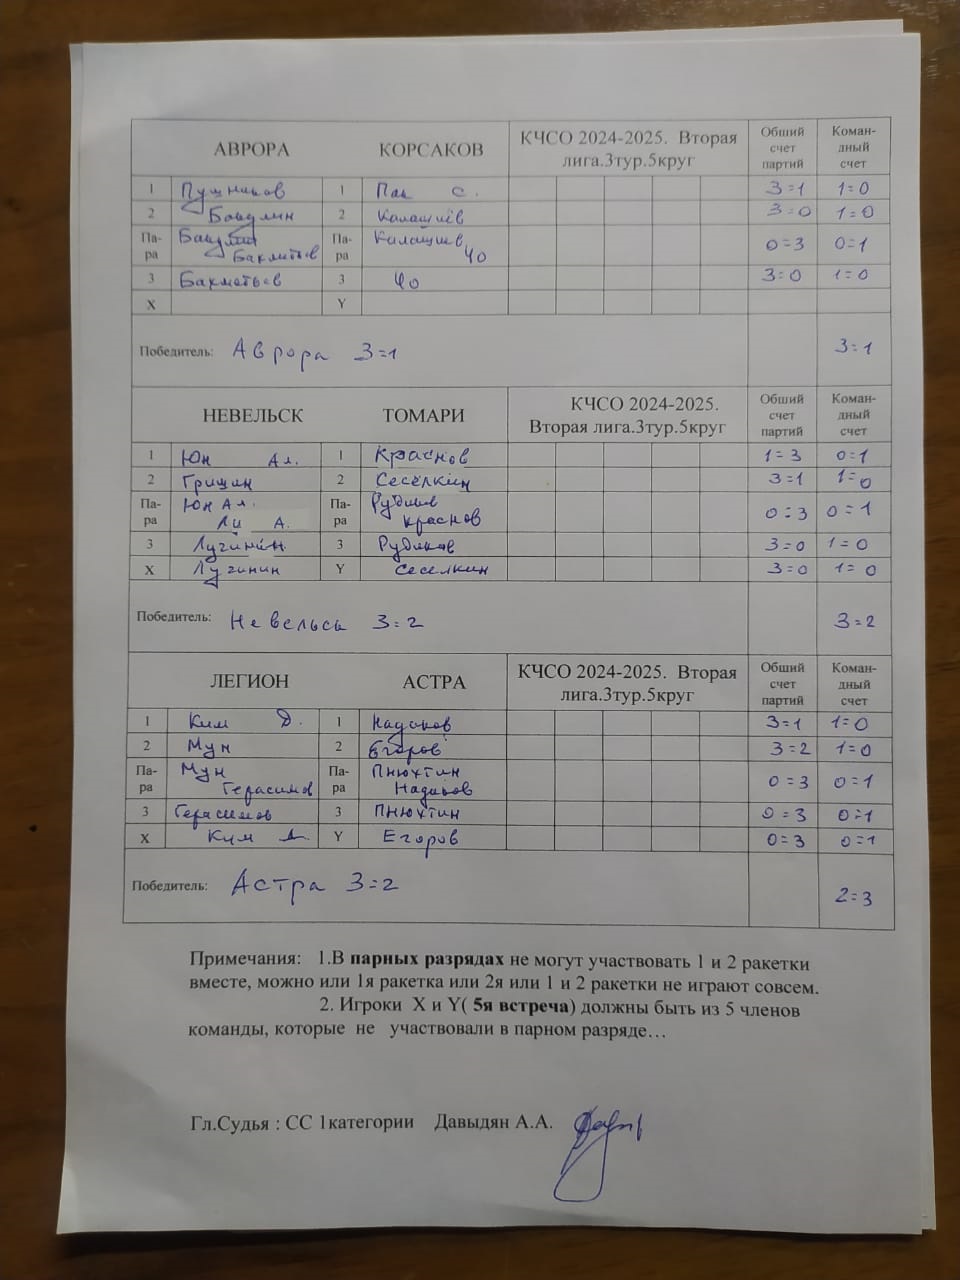 АВРОРА КОРСАКОВ КЧСО 2024-2025. Вторая лига.3тур.5круг Общий счет партий Коман-дный счет
1 Пушников 1 Пак С. 3=1 1=0
2 Бандлин 2 Калашиёв 3=0 1=0
Па-ра Бандлин Бакметьев Па-ра Калашиев Чо 0=3 0=1
3 Бакметьев 3 Чо 3=0 1=0
X Y
Победитель: Аврора 3=1 3=1
НЕВЕЛЬСК ТОМАРИ КЧСО 2024-2025. Вторая лига.3тур.5круг Общий счет партий Коман-дный счет
1 Юн Ал. 1 Краснов 1=3 0=1
2 Грицин 2 Сесёлкин 3=1 1=0
Па-ра Юн Ал. Ли А. Па-ра Рудиков краснов 0=3 0=1
3 Лугинин 3 Рудиков 3=0 1=0
X Лугинин Y Сеселкин 3=0 1=0
Победитель: Невельск 3=2 3=2
ЛЕГИОН АСТРА КЧСО 2024-2025. Вторая лига.3тур.5круг Общий счет партий Коман-дный счет
1 Ким Д. 1 Надиков 3=1 1=0
2 Мун 2 Егоров 3=2 1=0
Па-ра Мун Герасимов Па-ра Пнюхтин Надиков 0=3 0=1
3 Герасимов 3 Пнюхтин 0=3 0=1
X Ким Д. Y Егоров 0=3 0=1
Победитель: Астра 3=2 2=3
Примечания: 1.В парных разрядах не могут участвовать 1 и 2 ракетки
вместе, можно или 1я ракетка или 2я или 1 и 2 ракетки не играют совсем.
2. Игроки X и Y( 5я встреча) должны быть из 5 членов
команды, которые не участвовали в парном разряде…
Гл.Судья : СС 1категории Давыдян А.А.